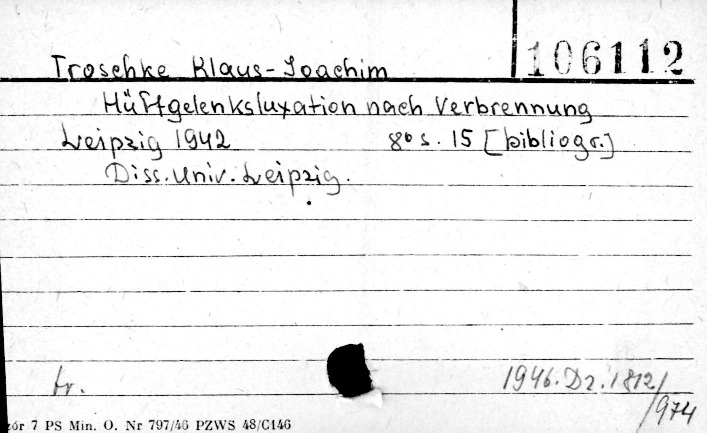 106112
Troschke Klaus-Joachim
Hüftgelenksluxation nach Verbrennung
Leipzig 1942 8° s. 15 [bibliogr.]
Diss. Univ. Leipzig.
tr.
1946. Dz. 1812/
/974
zór 7 PS Min. O. Nr 797/46 PZWS 48/C146